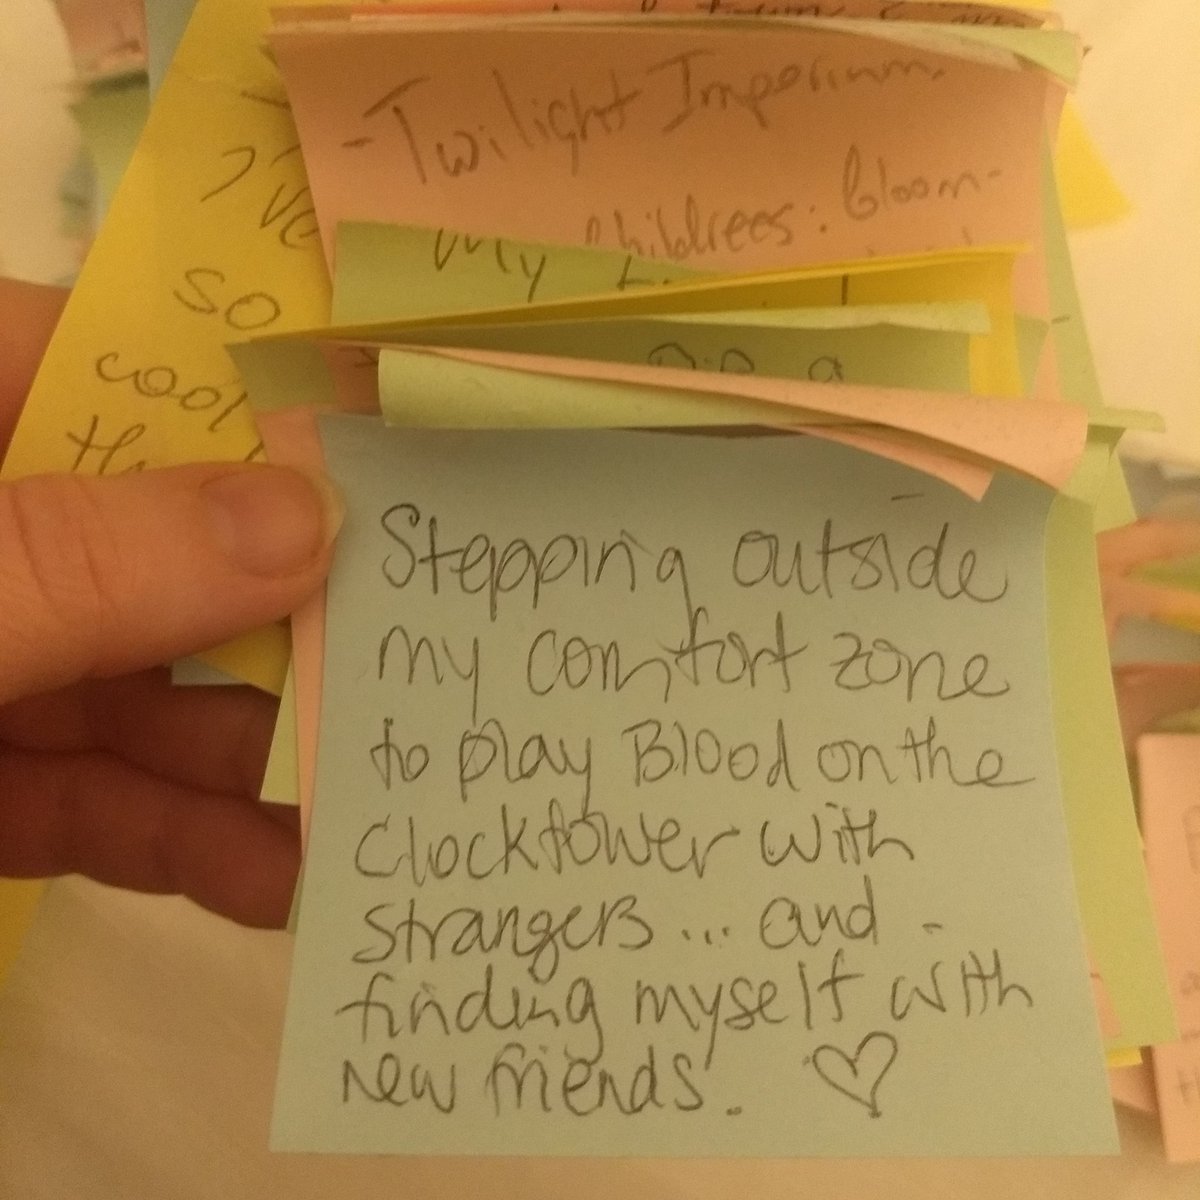 - Twilight Imperium.
: Bloom-
My
I've
so
cool
a
Stepping outside
my comfort zone
to play Blood on the
Clocktower with
strangers... and
finding myself with
new friends. ♡